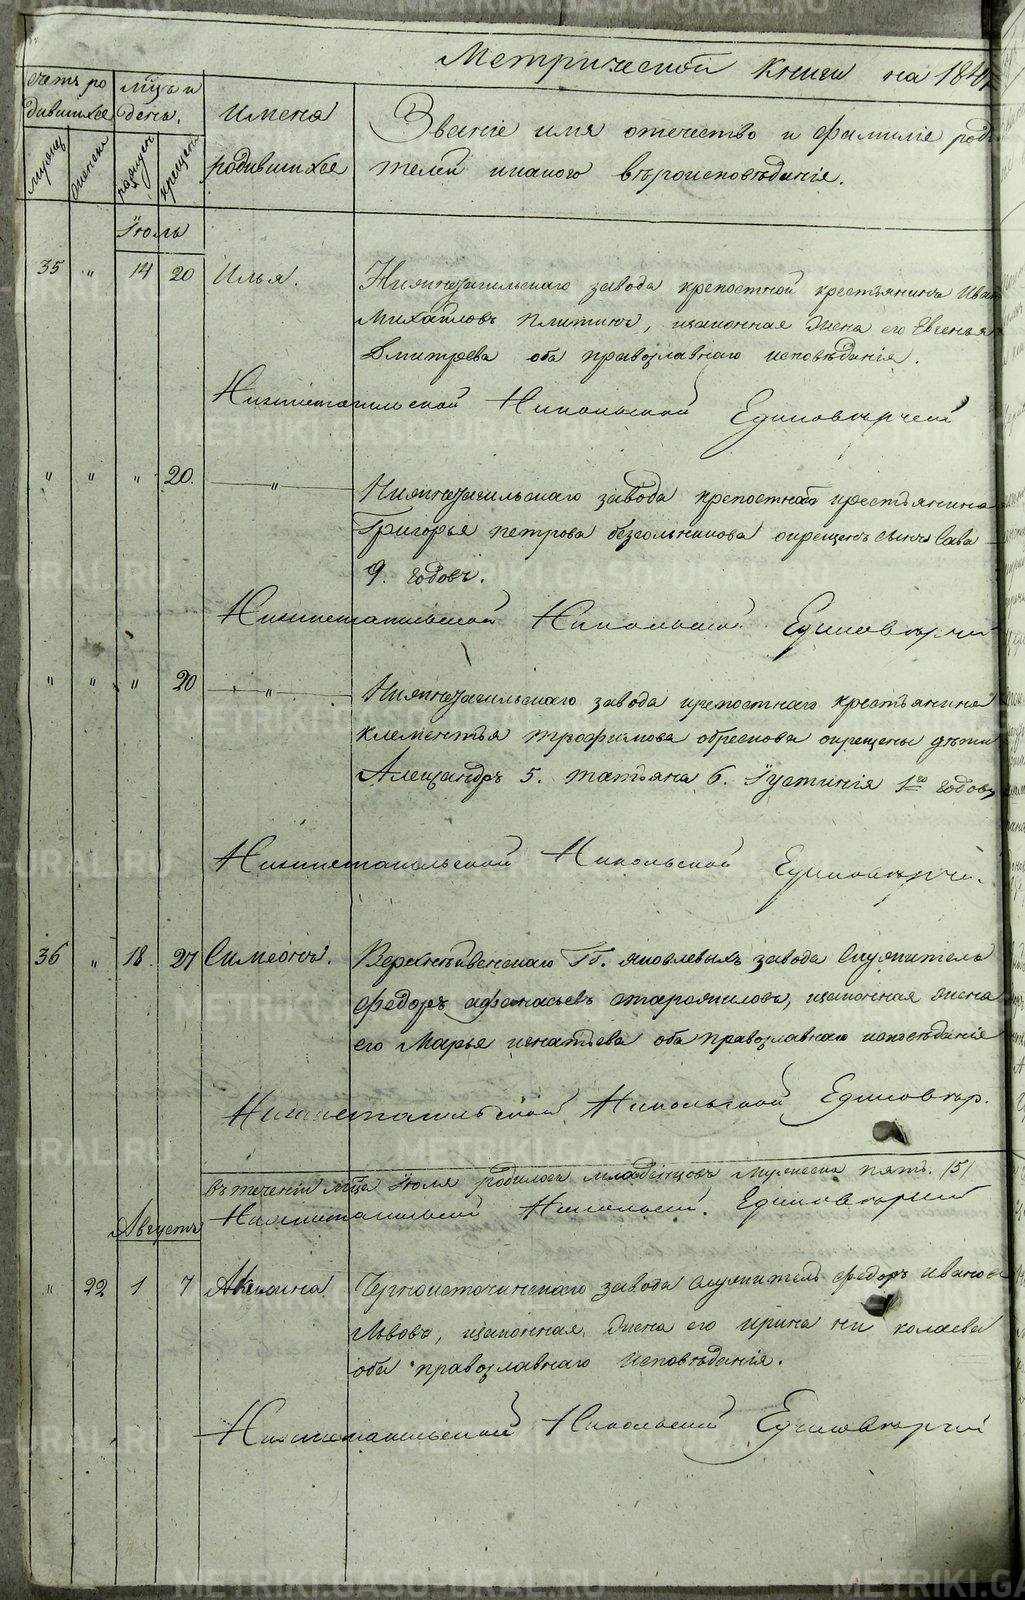 Метрической книги на 184
счетъ ро
дившихсе
мцъ и
день.
имена
родившихсе
Званіе имя отечество и фамиліе роди
телей и какого вѣроисповѣданія.
мужеск
женски
рожден
крещен
Іюль
35 " 14 20 Илья. Нижнетагильскаго завода крепостной крестьянинъ Иван
Михайловъ Плиткинъ, законная жена его Евгенья
Дмитрева оба православнаго исповѣданія.
Нижнетагильской Никольской Единоверчей
" " " 20. " Нижнетагильскаго завода крепостнаго крестьянина
Григорья петрова окрещенъ сынъ Сава
9. годовъ.
Нижнетагильской Никольской Единоверчей
" " " 20 " Нижнетагильскаго завода крепостнаго крестьянина
Клементья трофимова окрещены дѣти
Александръ 5. татьяна 6. Іустинія 1го годовъ
Нижнетагильской Никольской Единоверчей.
36 " 18 27 Симеонъ. Гг. яковлевыхъ завода Служитель
федоръ афонасьевъ старожиловъ, законная жена
его Марья игнатьева оба православнаго исповѣданія
Нижнетагильской Никольской Единовер.
въ теченіи мца Іюля родилось младенцовъ мужеска пять. /5/
Нижнетагильской Никольской. Единоверчей
Августъ
" 22 1 7 Акилина. Черноисточинскаго завода Служитель федоръ ивано
Львовъ, законная жена его ирина ни колаева
оба православнаго исповѣданія.
Нижнетагильской Никольской Единоверчей
METRIKI.GASO-URAL.RU